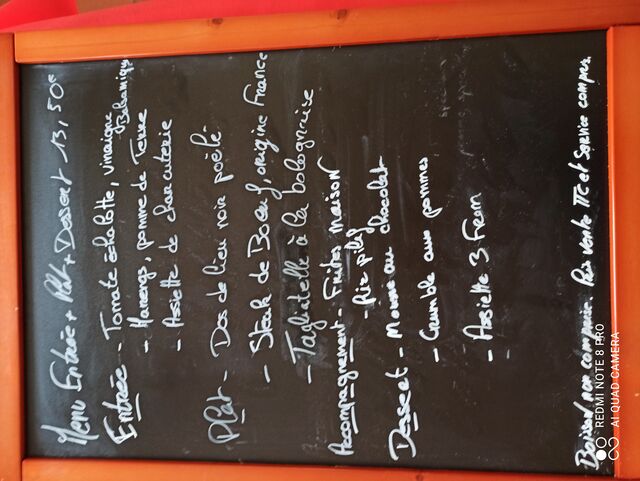 Menu Entrée + Plat + Dessert 13,50€
Entrée - Tomate échalotte, vinaigre Balsamique
- Harengs, pomme de Terre
- Assiette de charcuterie
Plat - Dos de lieu noir poêlé
- Steak de Boeuf, origine France
- Tagliatelle à la bolognaise
Accompagnement - Frites maison
- Riz pilaf
Dessert - Mousse au chocolat
- Crumble aux pommes
- Assiette 3 From
Boisson non comprise. Prix vente TTC et Service compris.
REDMI NOTE 8 PRO
AI QUAD CAMERA